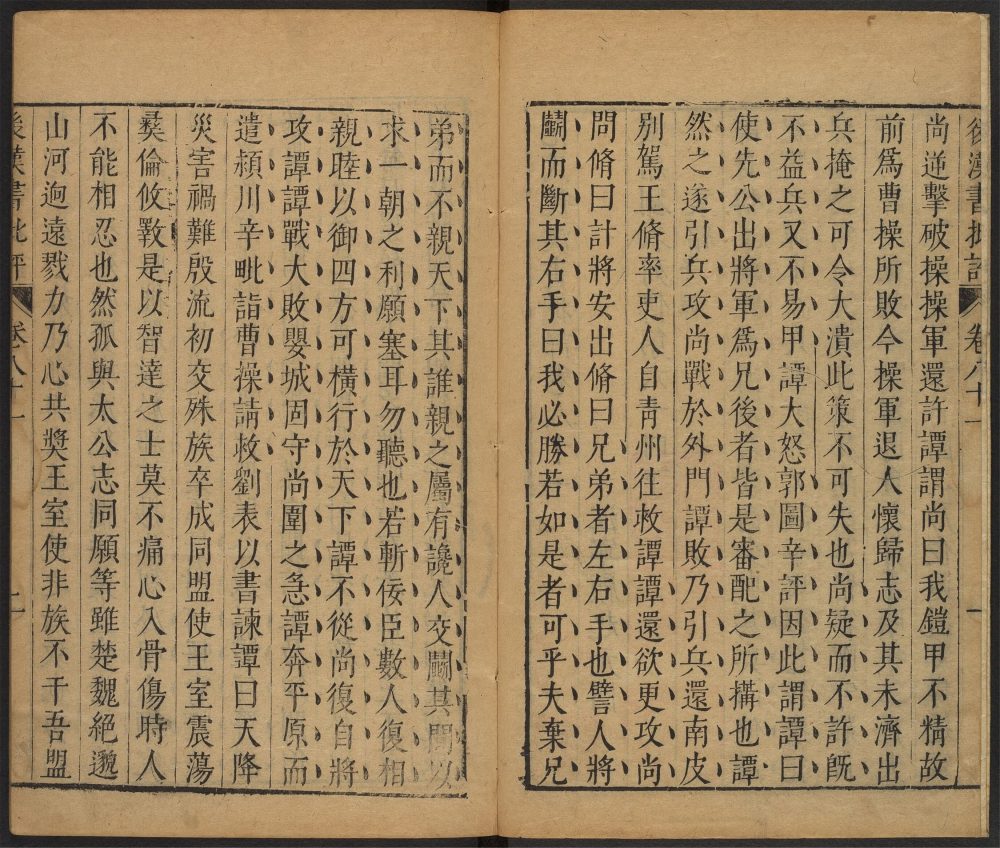 後漢書批評 卷八十一 一
尚逆擊破操操軍還許譚謂尚曰我鎧甲不精故
前爲曹操所敗今操軍退人懷歸志及其未濟出
兵掩之可令大潰此策不可失也尚疑而不許旣
不益兵又不易甲譚大怒郭圖辛評因此謂譚曰
使先公出將軍爲兄後者皆是審配之所搆也譚
然之遂引兵攻尚戰於外門譚敗乃引兵還南皮
別駕王脩率吏人自青州往救譚譚還欲更攻尚
問脩曰計將安出脩曰兄弟者左右手也譬人將
鬭而斷其右手曰我必勝若如是者可乎夫棄兄
弟而不親天下其誰親之屬有讒人交鬭其閒以
求一朝之利願塞耳勿聽也若斬佞臣數人復相
親睦以御四方可橫行於天下譚不從尚復自將
攻譚譚戰大敗嬰城固守尚圍之急譚奔平原而
遣潁川辛毗詣曹操請救劉表以書諫譚曰天降
災害禍難殷流初交殊族卒成同盟使王室震蕩
彝倫攸斁是以智達之士莫不痛心入骨傷時人
不能相忍也然孤與太公志同願等雖楚魏絕邈
山河迥遠戮力乃心共獎王室使非族不干吾盟
後漢書批評 卷八十一 二